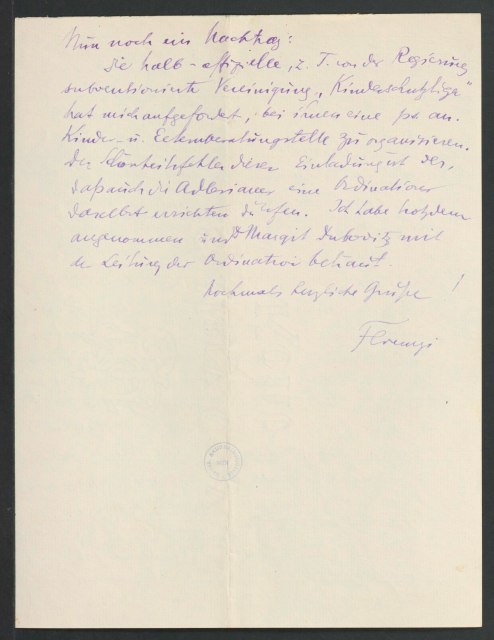 Nun noch ein Nachtrag:
Die halb-offizielle, z. T. von der Regierung
subventionierte Vereinigung „Kinderschutzliga"
hat mich aufgefordet, bei ihnen eine psa.
Kinder- u. Elternberatungstelle zu organisieren.
Der Schönheitsfehler dieser Einladung ist der,
dass auch die Adlerianer eine Ordination
daselbst errichten dürfen. Ich habe trotzdem
angenommen und Dr Margit Dubovitz mit
der Leitung der Ordination betraut.
Nochmals herzliche Grüße!
Ferenczi